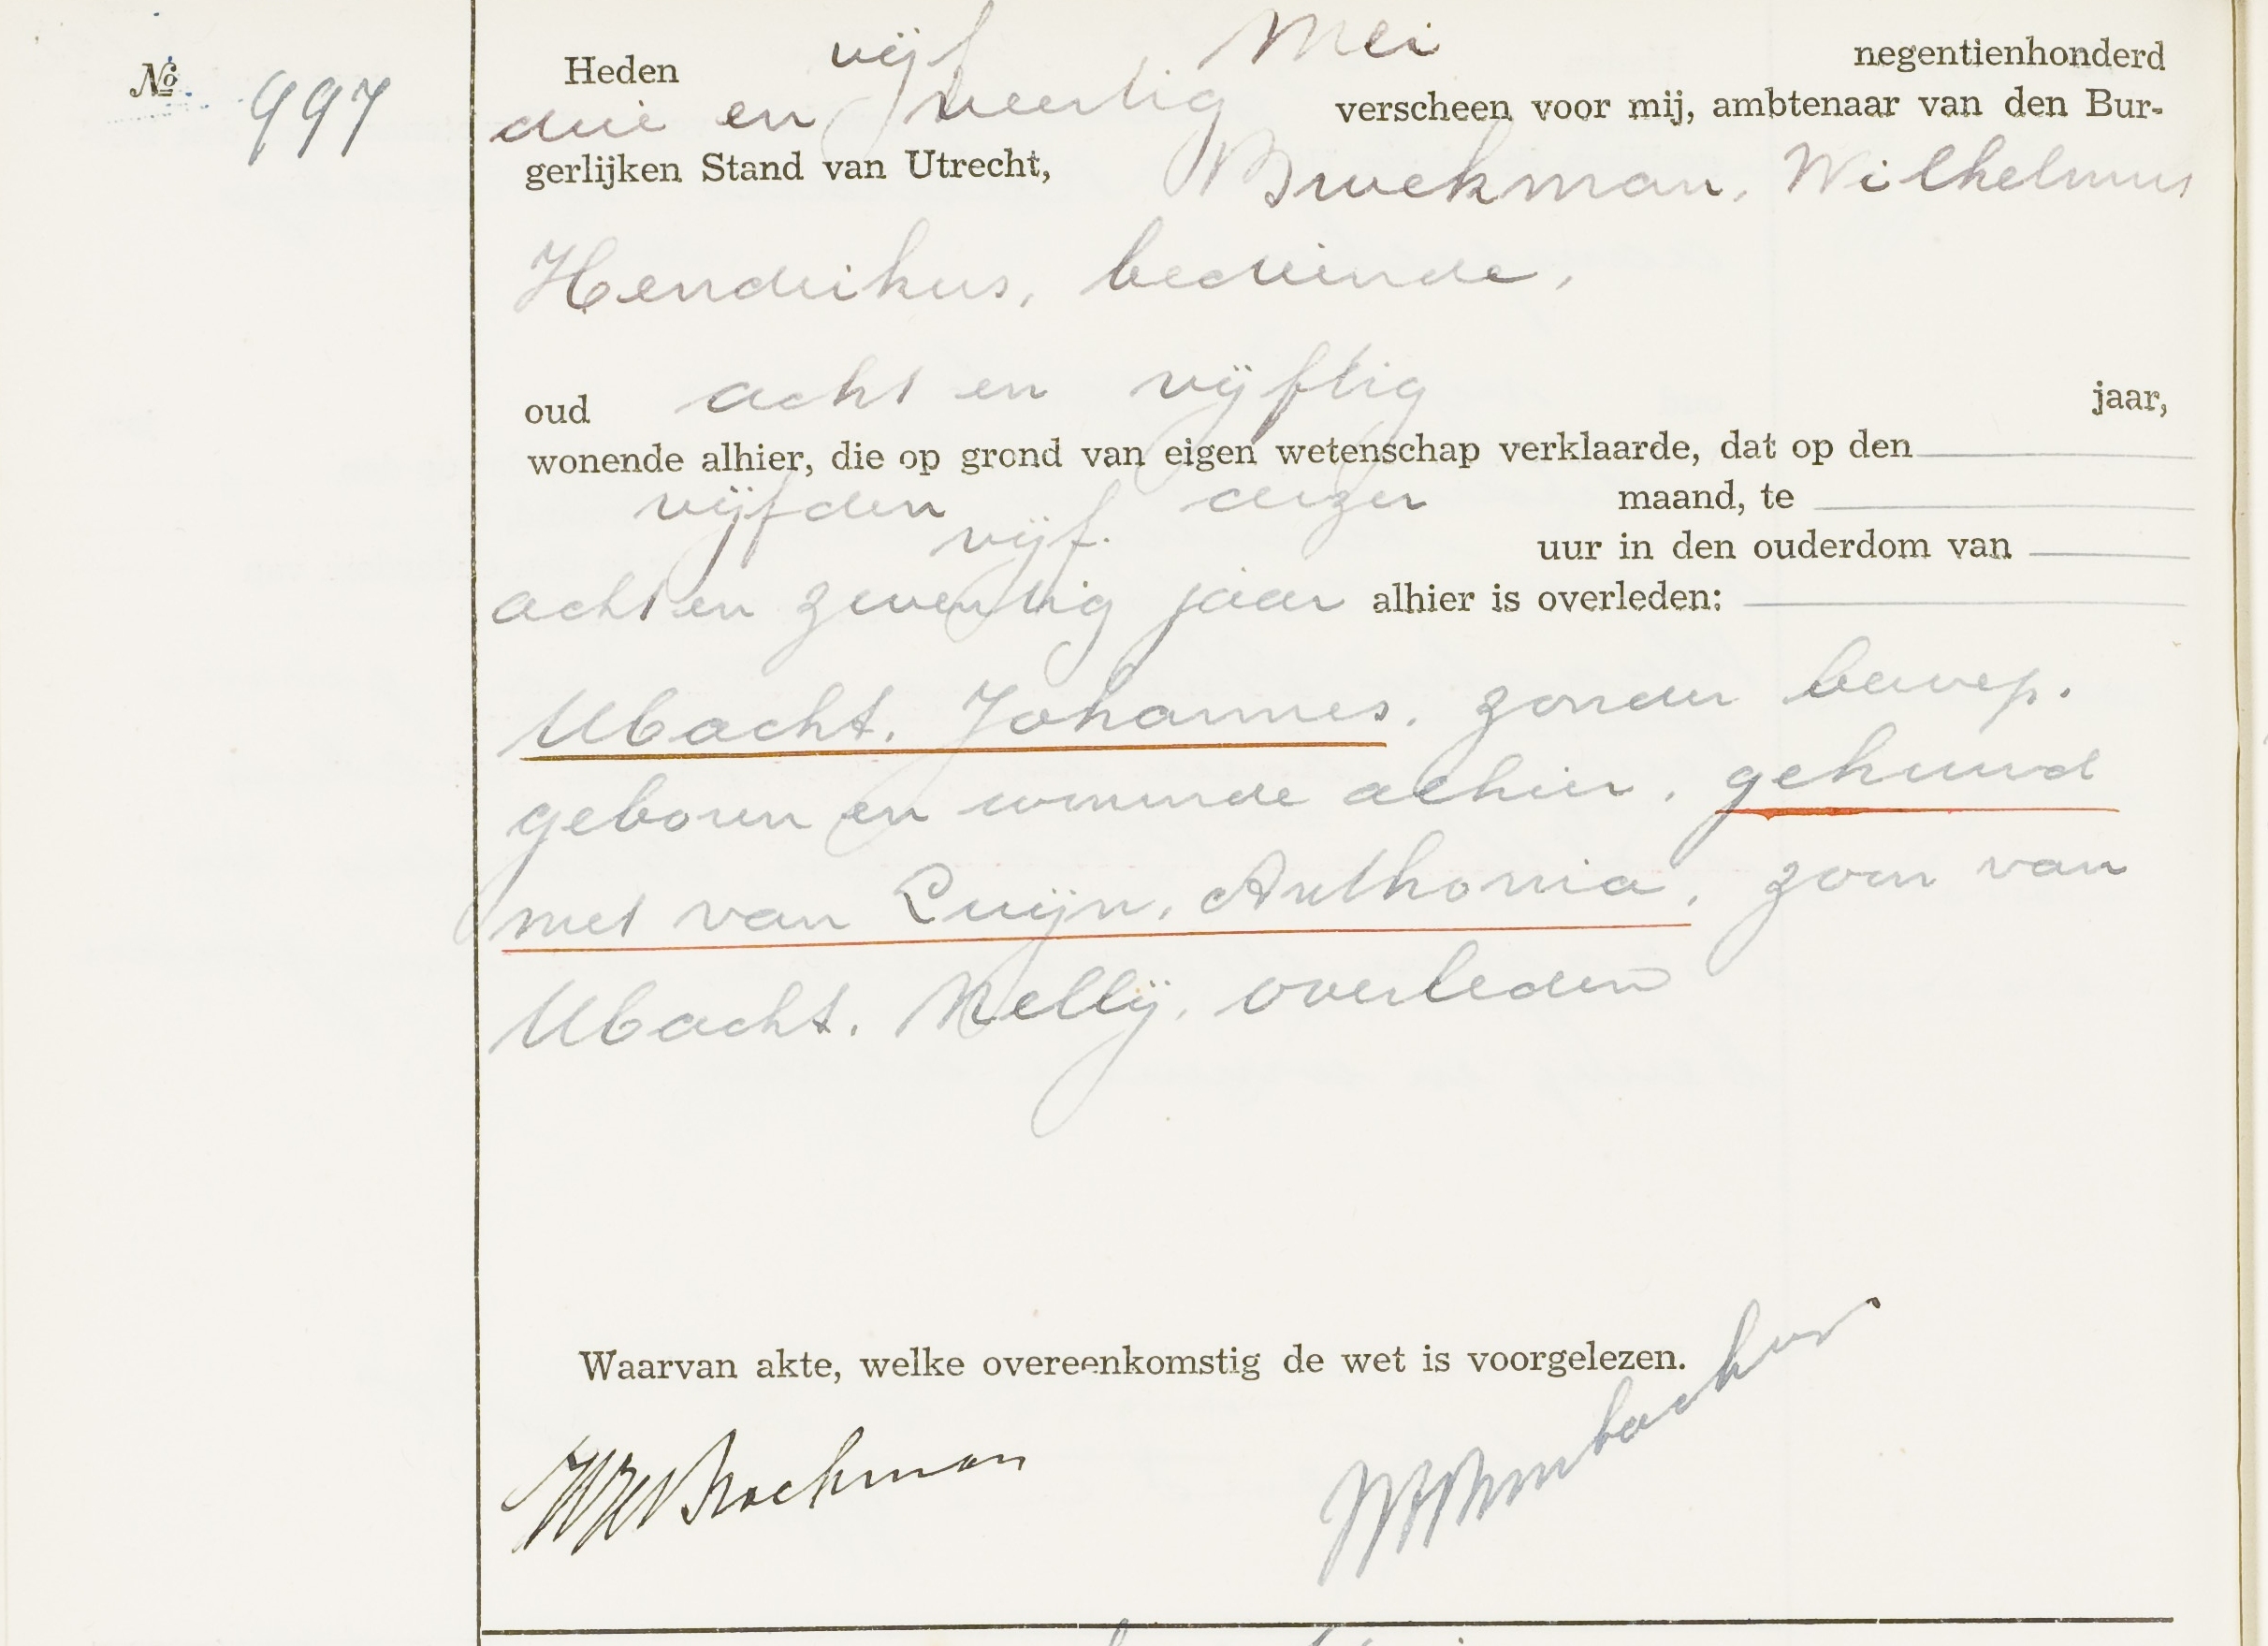 № 997
Heden vijf Mei negentienhonderd
drie en veertig verscheen voor mij, ambtenaar van den Bur-
gerlijken Stand van Utrecht, Broekman, Wilhelmus
Hendrikus, bediende,
oud acht en vijftig jaar,
wonende alhier, die op grond van eigen wetenschap verklaarde, dat op den
vijfden dezer maand, te
vijf uur in den ouderdom van
acht en zeventig jaar alhier is overleden:
Ubacht, Johannes, zonder beroep,
geboren en wonende alhier, gehuwd
met van Luijn, Anthonia, zoon van
Ubacht, Nellij, overleden
Waarvan akte, welke overeenkomstig de wet is voorgelezen.
WH Broekman